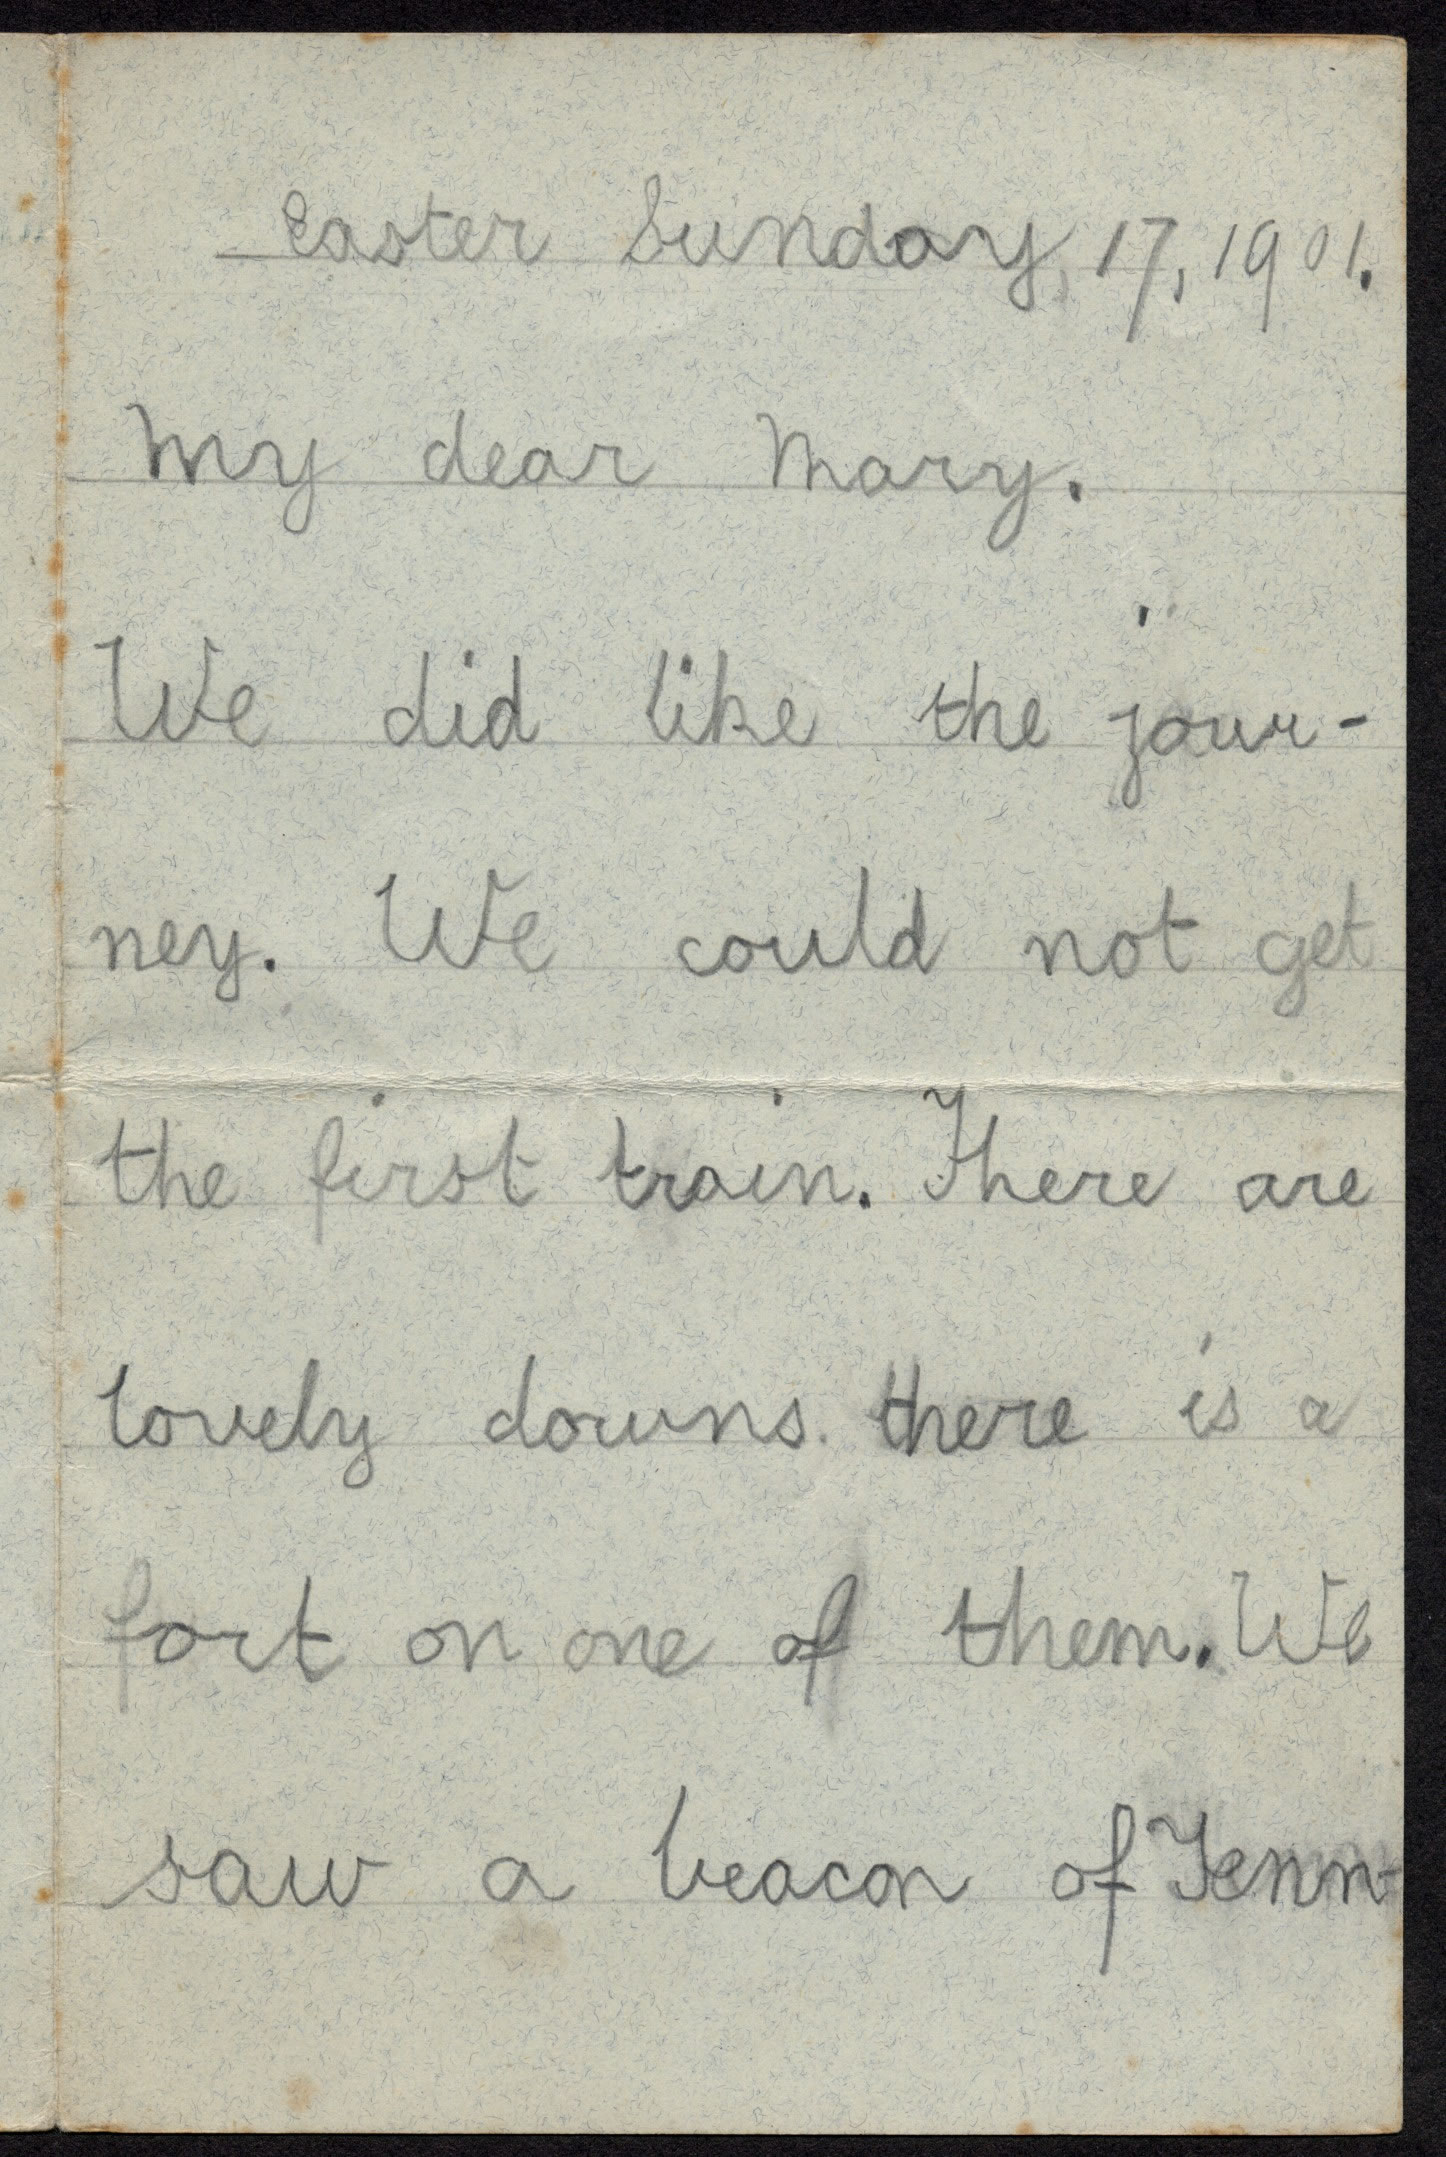 Easter Sunday, 17, 1901.
My dear Mary.
We did like the jour-
ney. We could not get
the first train. There are
lovely downs. there is a
fort on one of them. We
saw a beacon of Tenn-